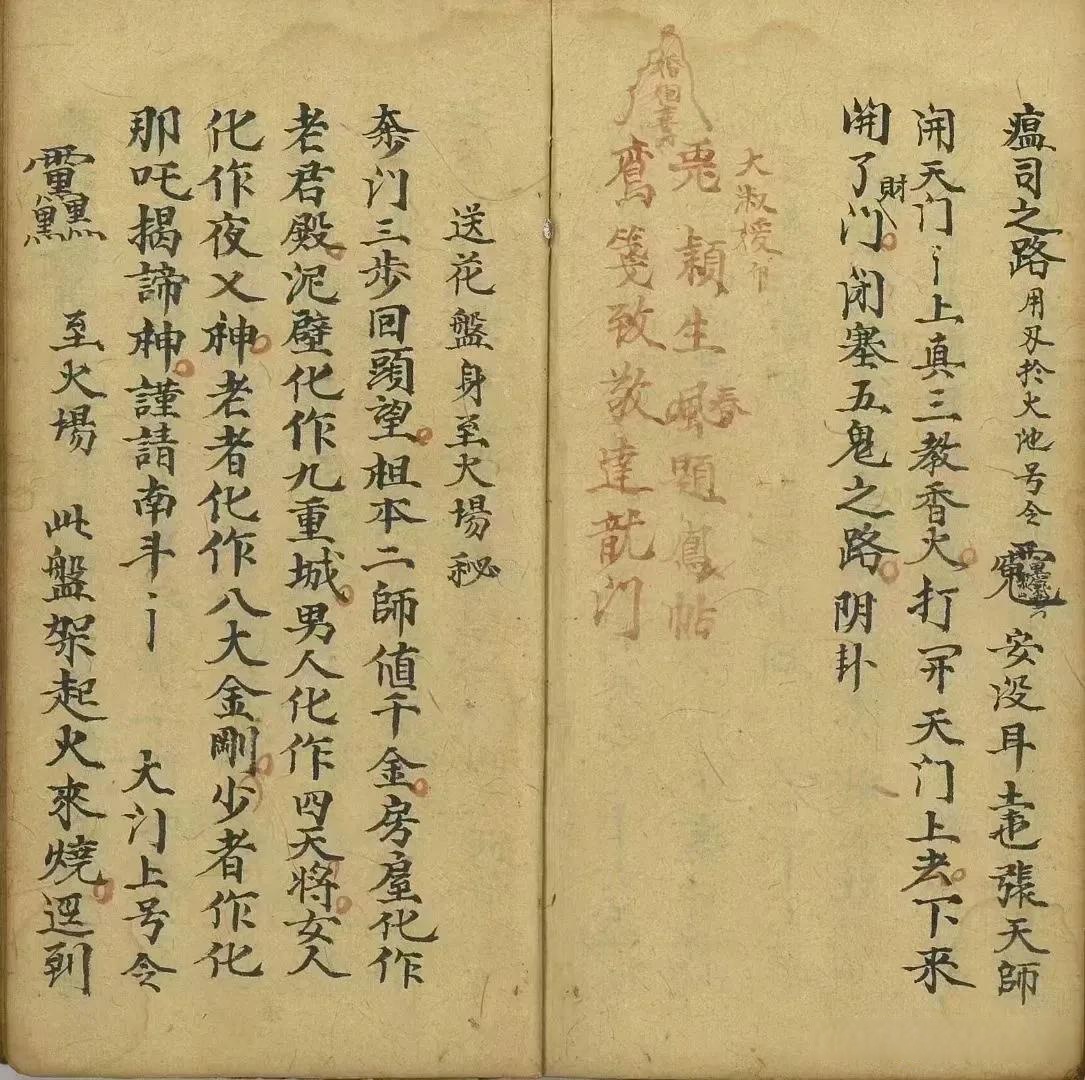 瘟司之路用刀於火池号令安没耳毒張天師
開天门〻上真三教香火打开天门上去下来
開了财门闭塞五鬼之路阴卦
大淑授
兎颖生風題鳳帖
春
鸾箋致敬達龍门
送花盤身至火場秘
奈门三步回頭望祖本二師值千金房屋化作
老君殿泥壁化作九重城男人化作四天将女人
化作夜叉神老者化作八大金剛少者作化
那吒揭諦神謹請南斗〻大门上号令
至火場此盤架起火來燒逕到